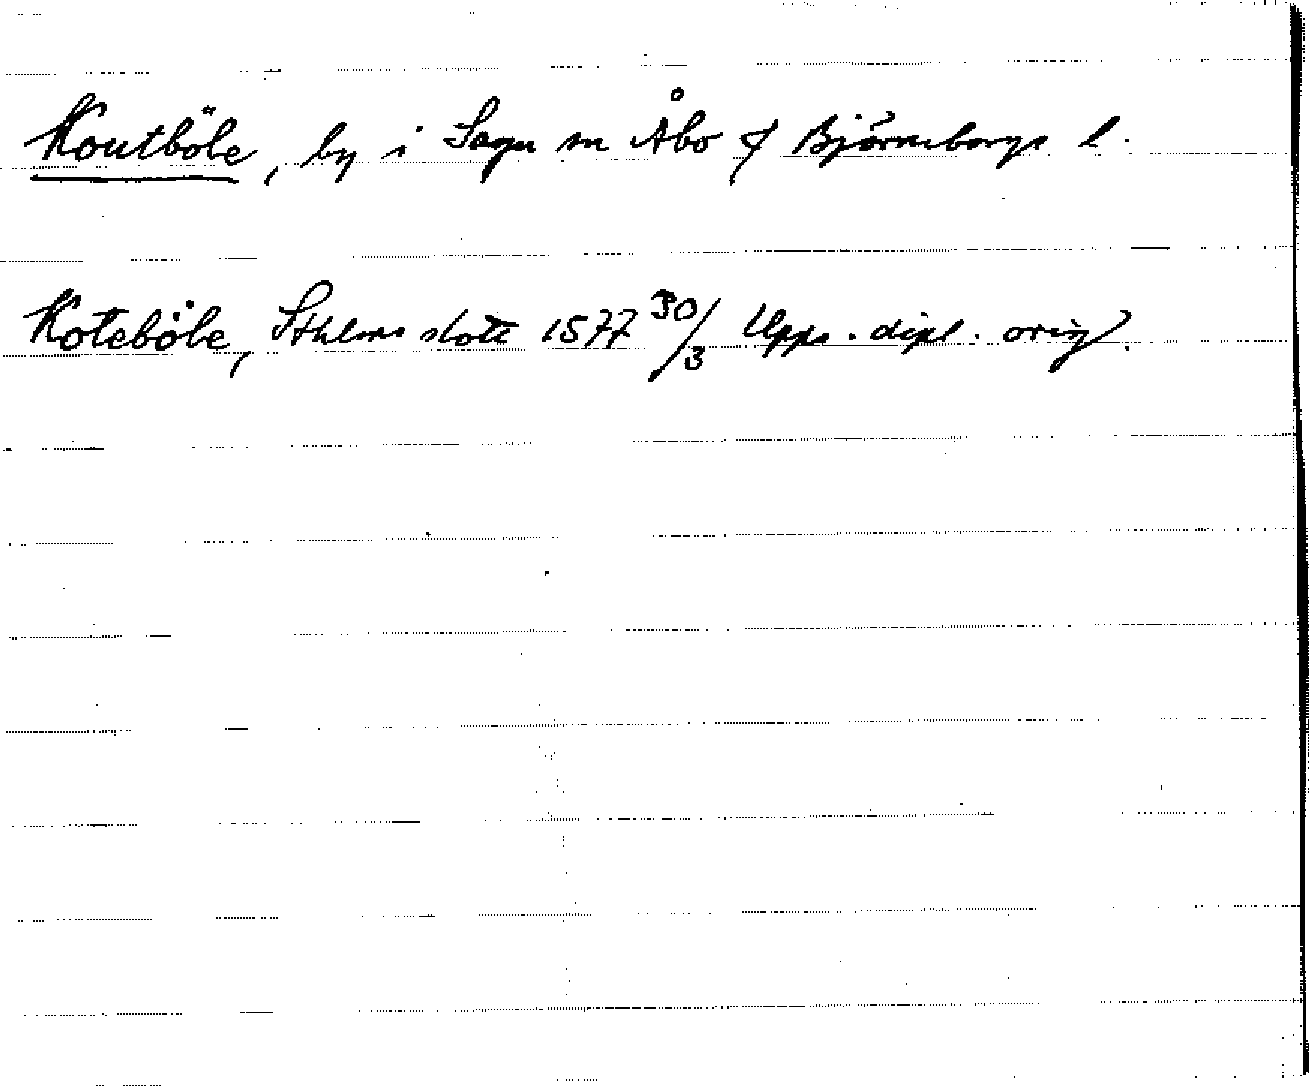 Koutböle, by i Sagu sn Åbo & Björneborgs l.
Koteböle, Sthlms slott 1577 30/3 Upps. dipl. orig.